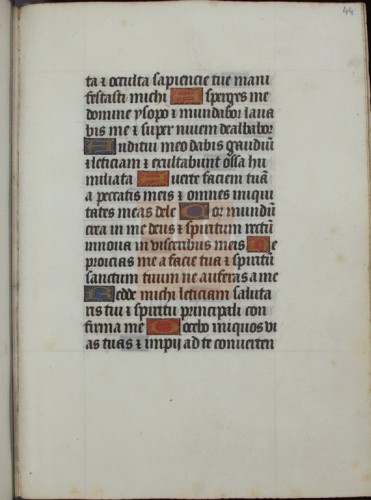 44
ta & occulta sapiencie tue mani
festasti michi sperges me
domine ysopo & mundabor laua
bis me & super niuem dealbabor
uditui meo dabis gaudiū
& leticiam & exultabunt ossa hu
miliata uerte faciem tuā
a peccatis meis & omnes iniqui
tates meas dele or mundū
crea in me deus & spiritum rectū
innoua in visceribus meis e
proicias me a facie tua & spiritū
sanctum tuum ne auferas a me
edde michi leticiam saluta
ris tui & spiritu principali con
firma me ocebo iniquos vi
as tuas & impij ad te conuerten